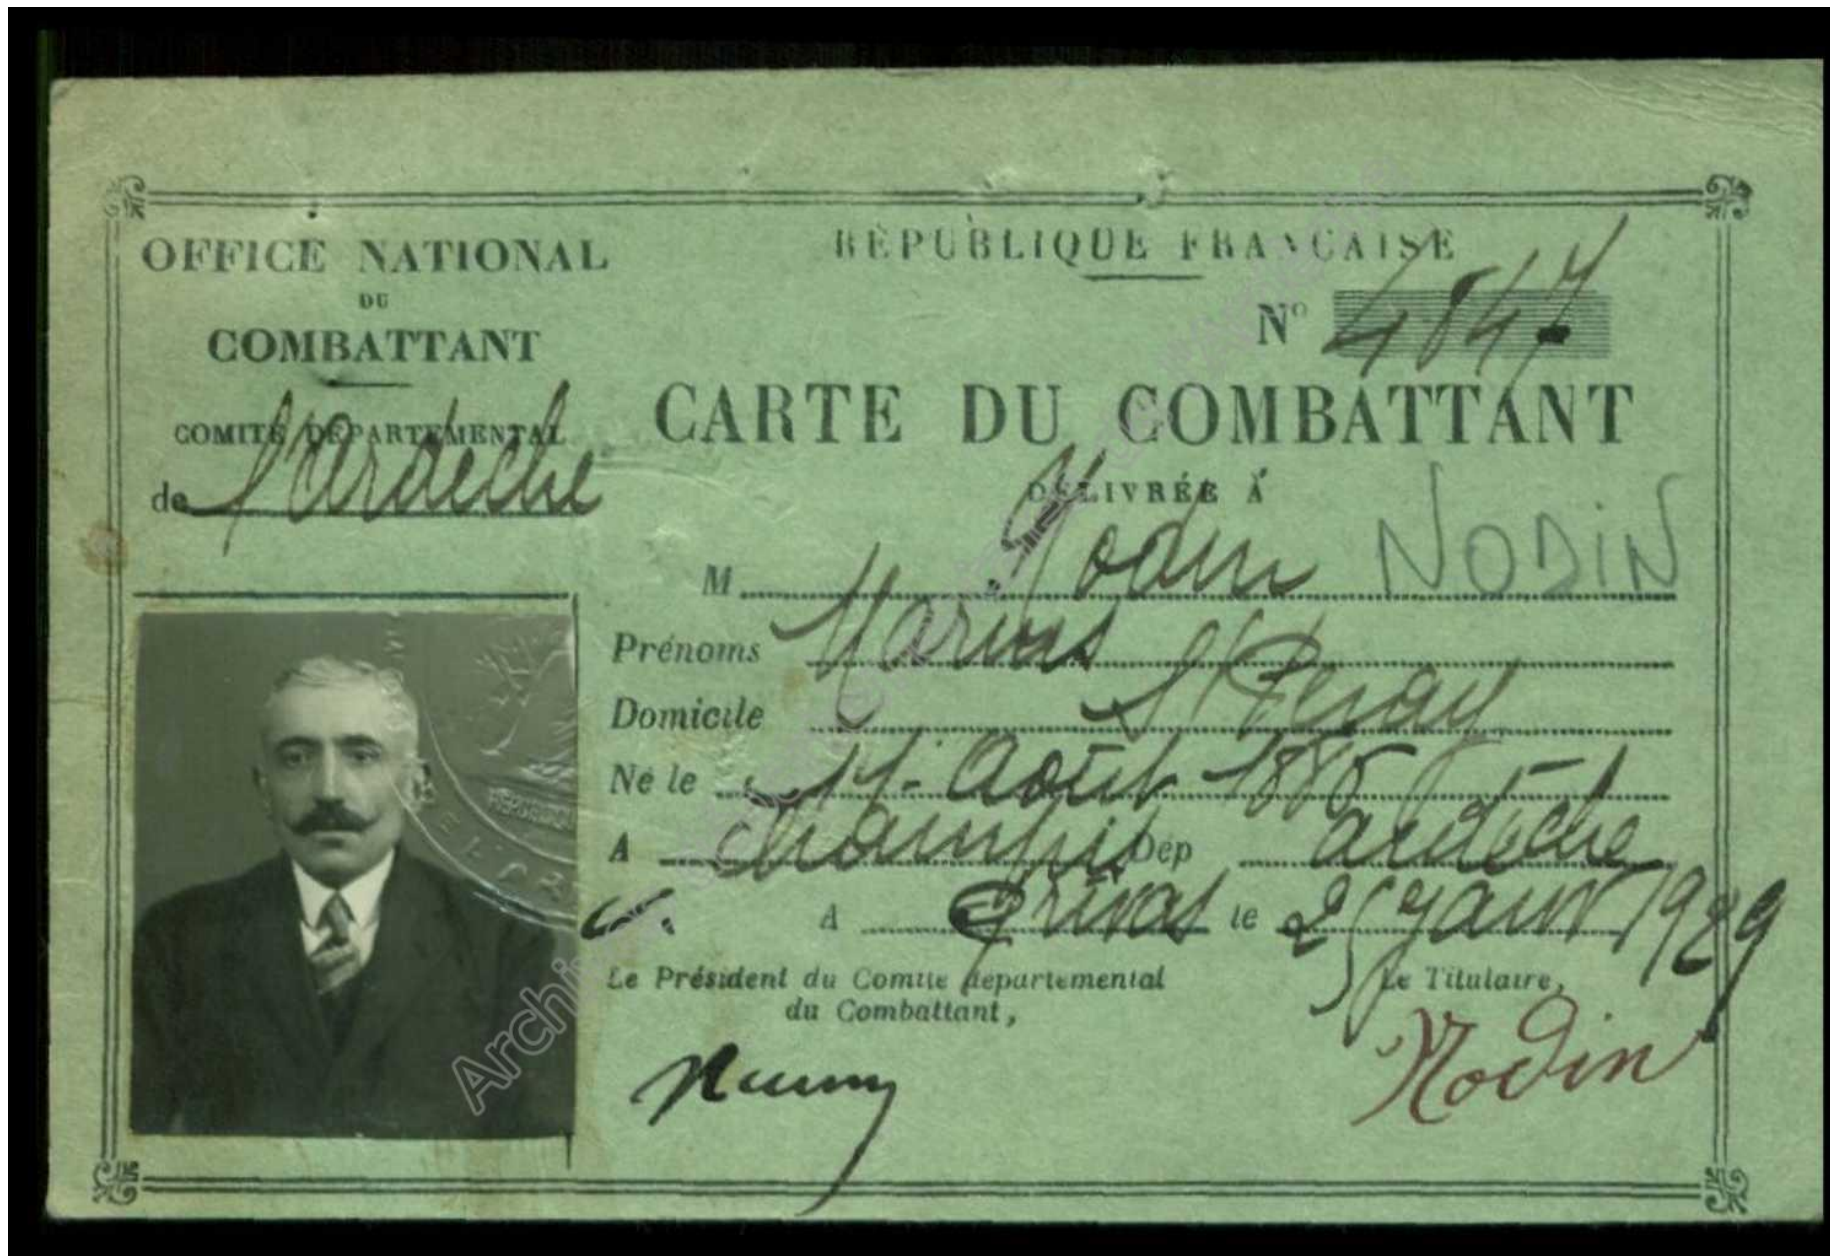 OFFICE NATIONAL
DU
COMBATTANT
COMITÉ DÉPARTEMENTAL
de l'Ardèche
RÉPUBLIQUE FRANÇAISE
N° 4847
CARTE DU COMBATTANT
DÉLIVRÉE À
M Nodin NODIN
Prénoms Marius
Domicile St Péray
Né le 11 Août 1886
A Champis Dép Ardèche
A Privas le 25 Janv 1929
Le Président du Comité départemental
du Combattant,
Le Titulaire,
Nodin